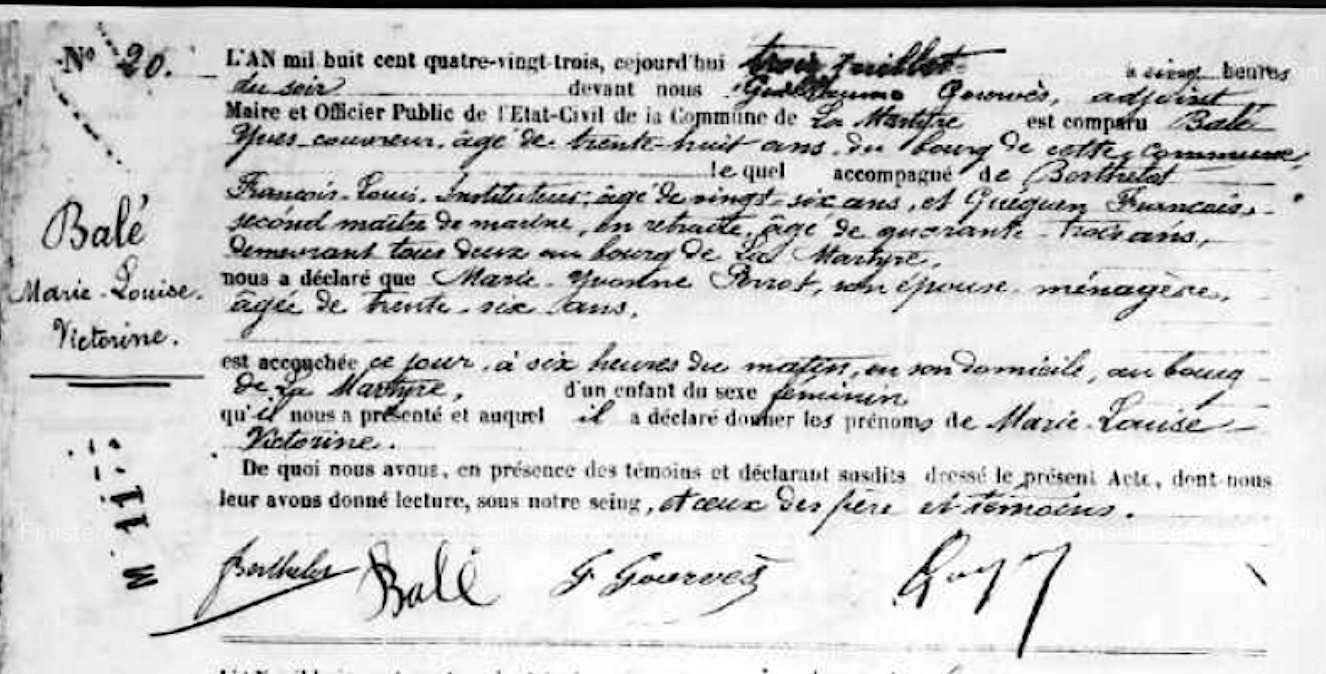 N° 20.
L'AN mil huit cent quatre-vingt-trois, cejourd'hui trois juillet à cinq heures
du soir devant nous Guillaume Gourvès, adjoint
Maire et Officier Public de l'Etat-Civil de la Commune de La Martyre est comparu Balé
Yves couvreur, âgé de trente-huit ans, du bourg de cette commune,
le quel accompagné de Berthelot
François-Louis, Instituteur, âgé de vingt-six ans, et Guéguen Francois,
second maître de marine, en retraite, âgé de quarante-trois ans,
demeurant tous deux au bourg de La Martyre,
nous a déclaré que Marie-Yvonne Perrot, son épouse, ménagère,
âgée de trente-six ans,
est accouchée ce jour, à six heures du matin, en son domicile, au bourg
de La Martyre, d'un enfant du sexe féminin
qu'il nous a présenté et auquel il a déclaré donner les prénoms de Marie-Louise
Victorine.
De quoi nous avons, en présence des témoins et déclarant susdits dressé le présent Acte, dont nous
leur avons donné lecture, sous notre seing, et ceux des père et témoins.
Balé
Marie-Louise.
Victorine.
M 11
Berthelot Balé G Gourvès
Conseil Général du Finistère
L'AN mil huit cent